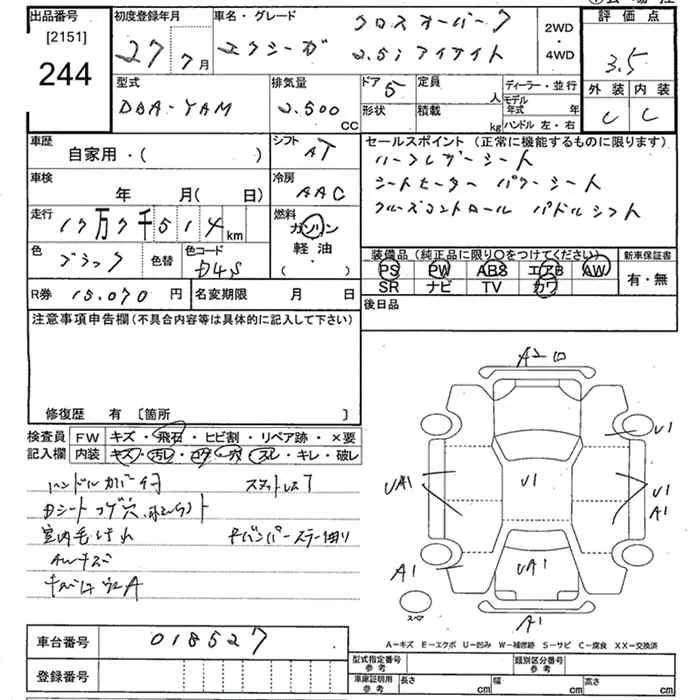 出品番号 [2151] 244
初度登録年月 27 7月
車名・グレード クロスオーバー7
エクシーガ 2.5i アイサイト
2WD・4WD
評価点 3.5
外装 内装
C C
型式 DBA-YAM
排気量 2.500 CC
ドア 5
形状
定員 人
積載 kg
ディーラー・並行
モデル年式 年
ハンドル 左・右
車歴 自家用・( )
シフト AT
車検 年 月( 日)
冷房 AAC
走行 17万7千514km
燃料 ガソリン 軽油・( )
色 ブラック 色替 色コード D4S
R券 15.070円 名変期限 月 日
セールスポイント(正常に機能するものに限ります)
ハーフレザーシート
シートヒーター パワーシート
クルーズコントロール パドルシフト
装備品(純正品に限り○をつけてください) 新車保証書
PS PW ABS エアB AW 有・無
SR ナビ TV カワ
後日品
注意事項申告欄(不具合内容等は具体的に記入して下さい)
修復歴 有〔箇所 〕
検査員記入欄
FW キズ・飛石・ヒビ割・リペア跡・×要
内装 キズ・汚レ・コゲ・穴・スレ・キレ・破レ
ハンドルカバー付
室内毛
AWキズ
A2
U1
UA1
U1
U1
A1
A1
UA1
A1
スペア
A-キズ E-エクボ U-凹み W-補修跡 S-サビ C-腐食 XX-交換済
車台番号 018527
登録番号
型式指定番号 参考
類別区分番号 参考
車庫証明用 参考
長さ cm 幅 cm 高さ cm